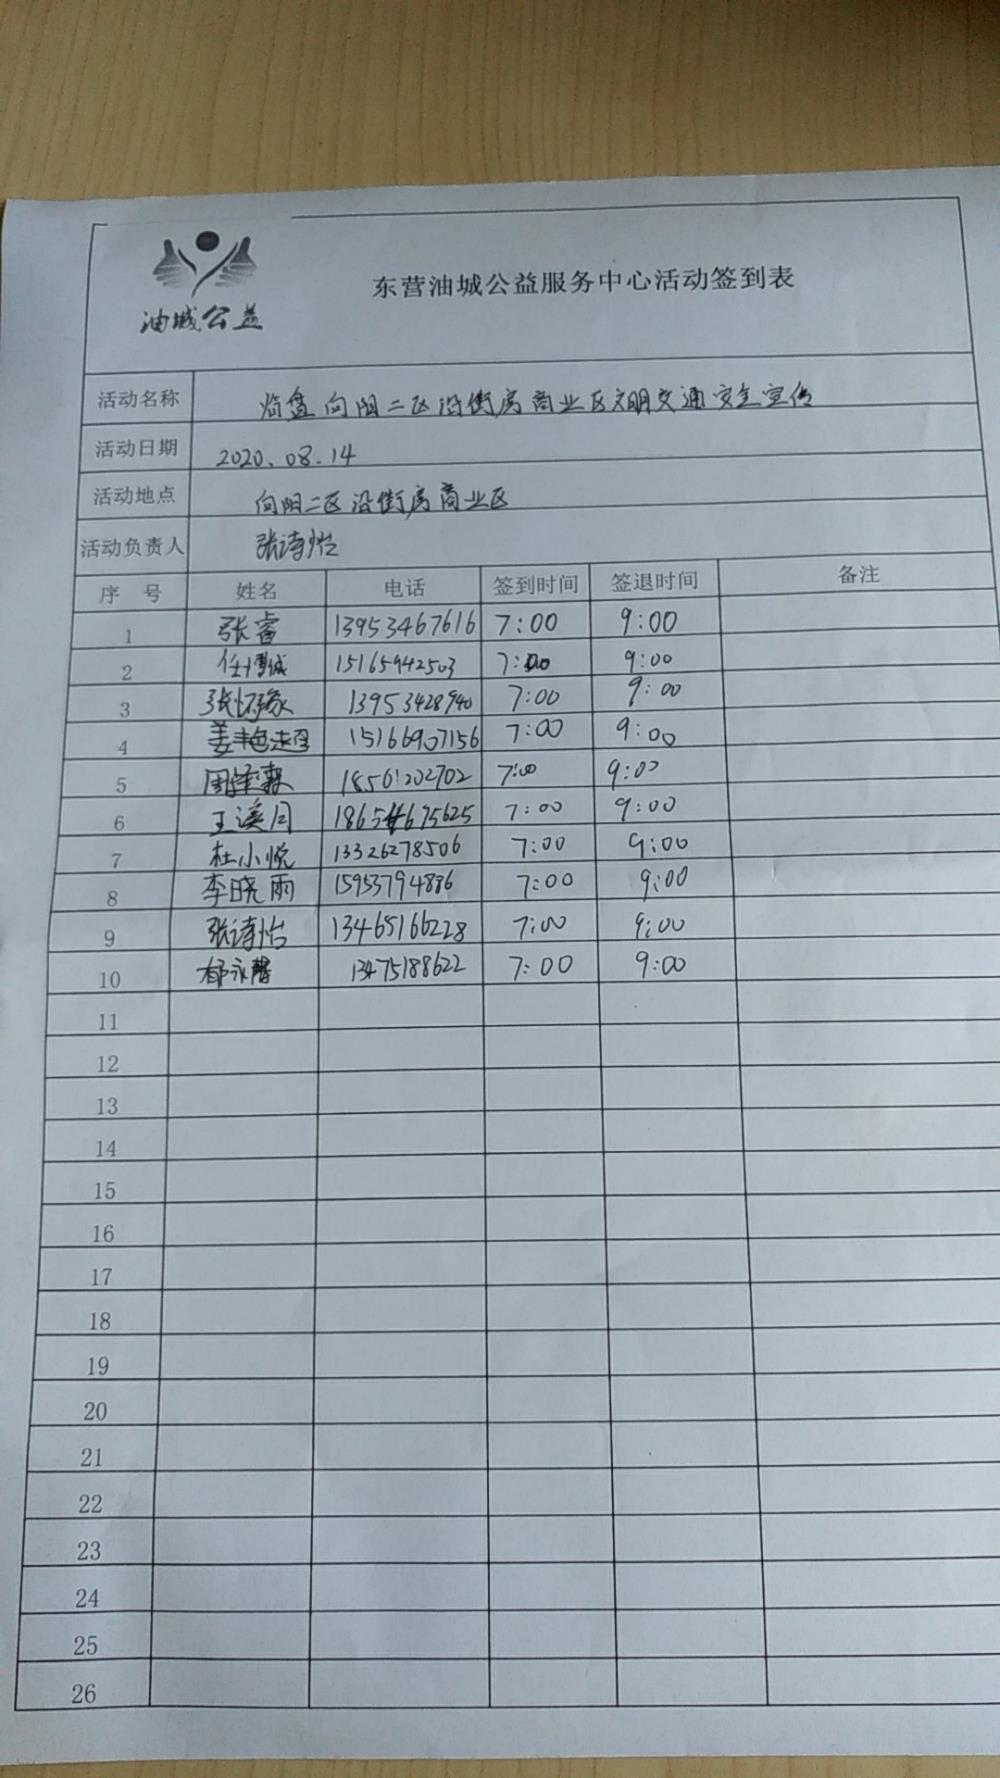 油城公益
东营油城公益服务中心活动签到表
活动名称 临盘向阳二区沿街房商业区文明交通安全宣传
活动日期 2020.08.14
活动地点 向阳二区沿街房商业区
活动负责人 张诗怡
序号 姓名 电话 签到时间 签退时间 备注
1 张睿 13953467616 7:00 9:00
2 任博诚 15165942503 7:00 9:00
3 张怀 13953428940 7:00 9:00
4 姜艳超 15166907156 7:00 9:00
5 周泽霖 18561202702 7:00 9:00
6 王溪月 7:00 9:00
7 杜小悦 13326278506 7:00 9:00
8 李晓雨 15953794886 7:00 9:00
9 张诗怡 13465166228 7:00 9:00
10 郁永馨 13475188622 7:00 9:00
11
12
13
14
15
16
17
18
19
20
21
22
23
24
25
26